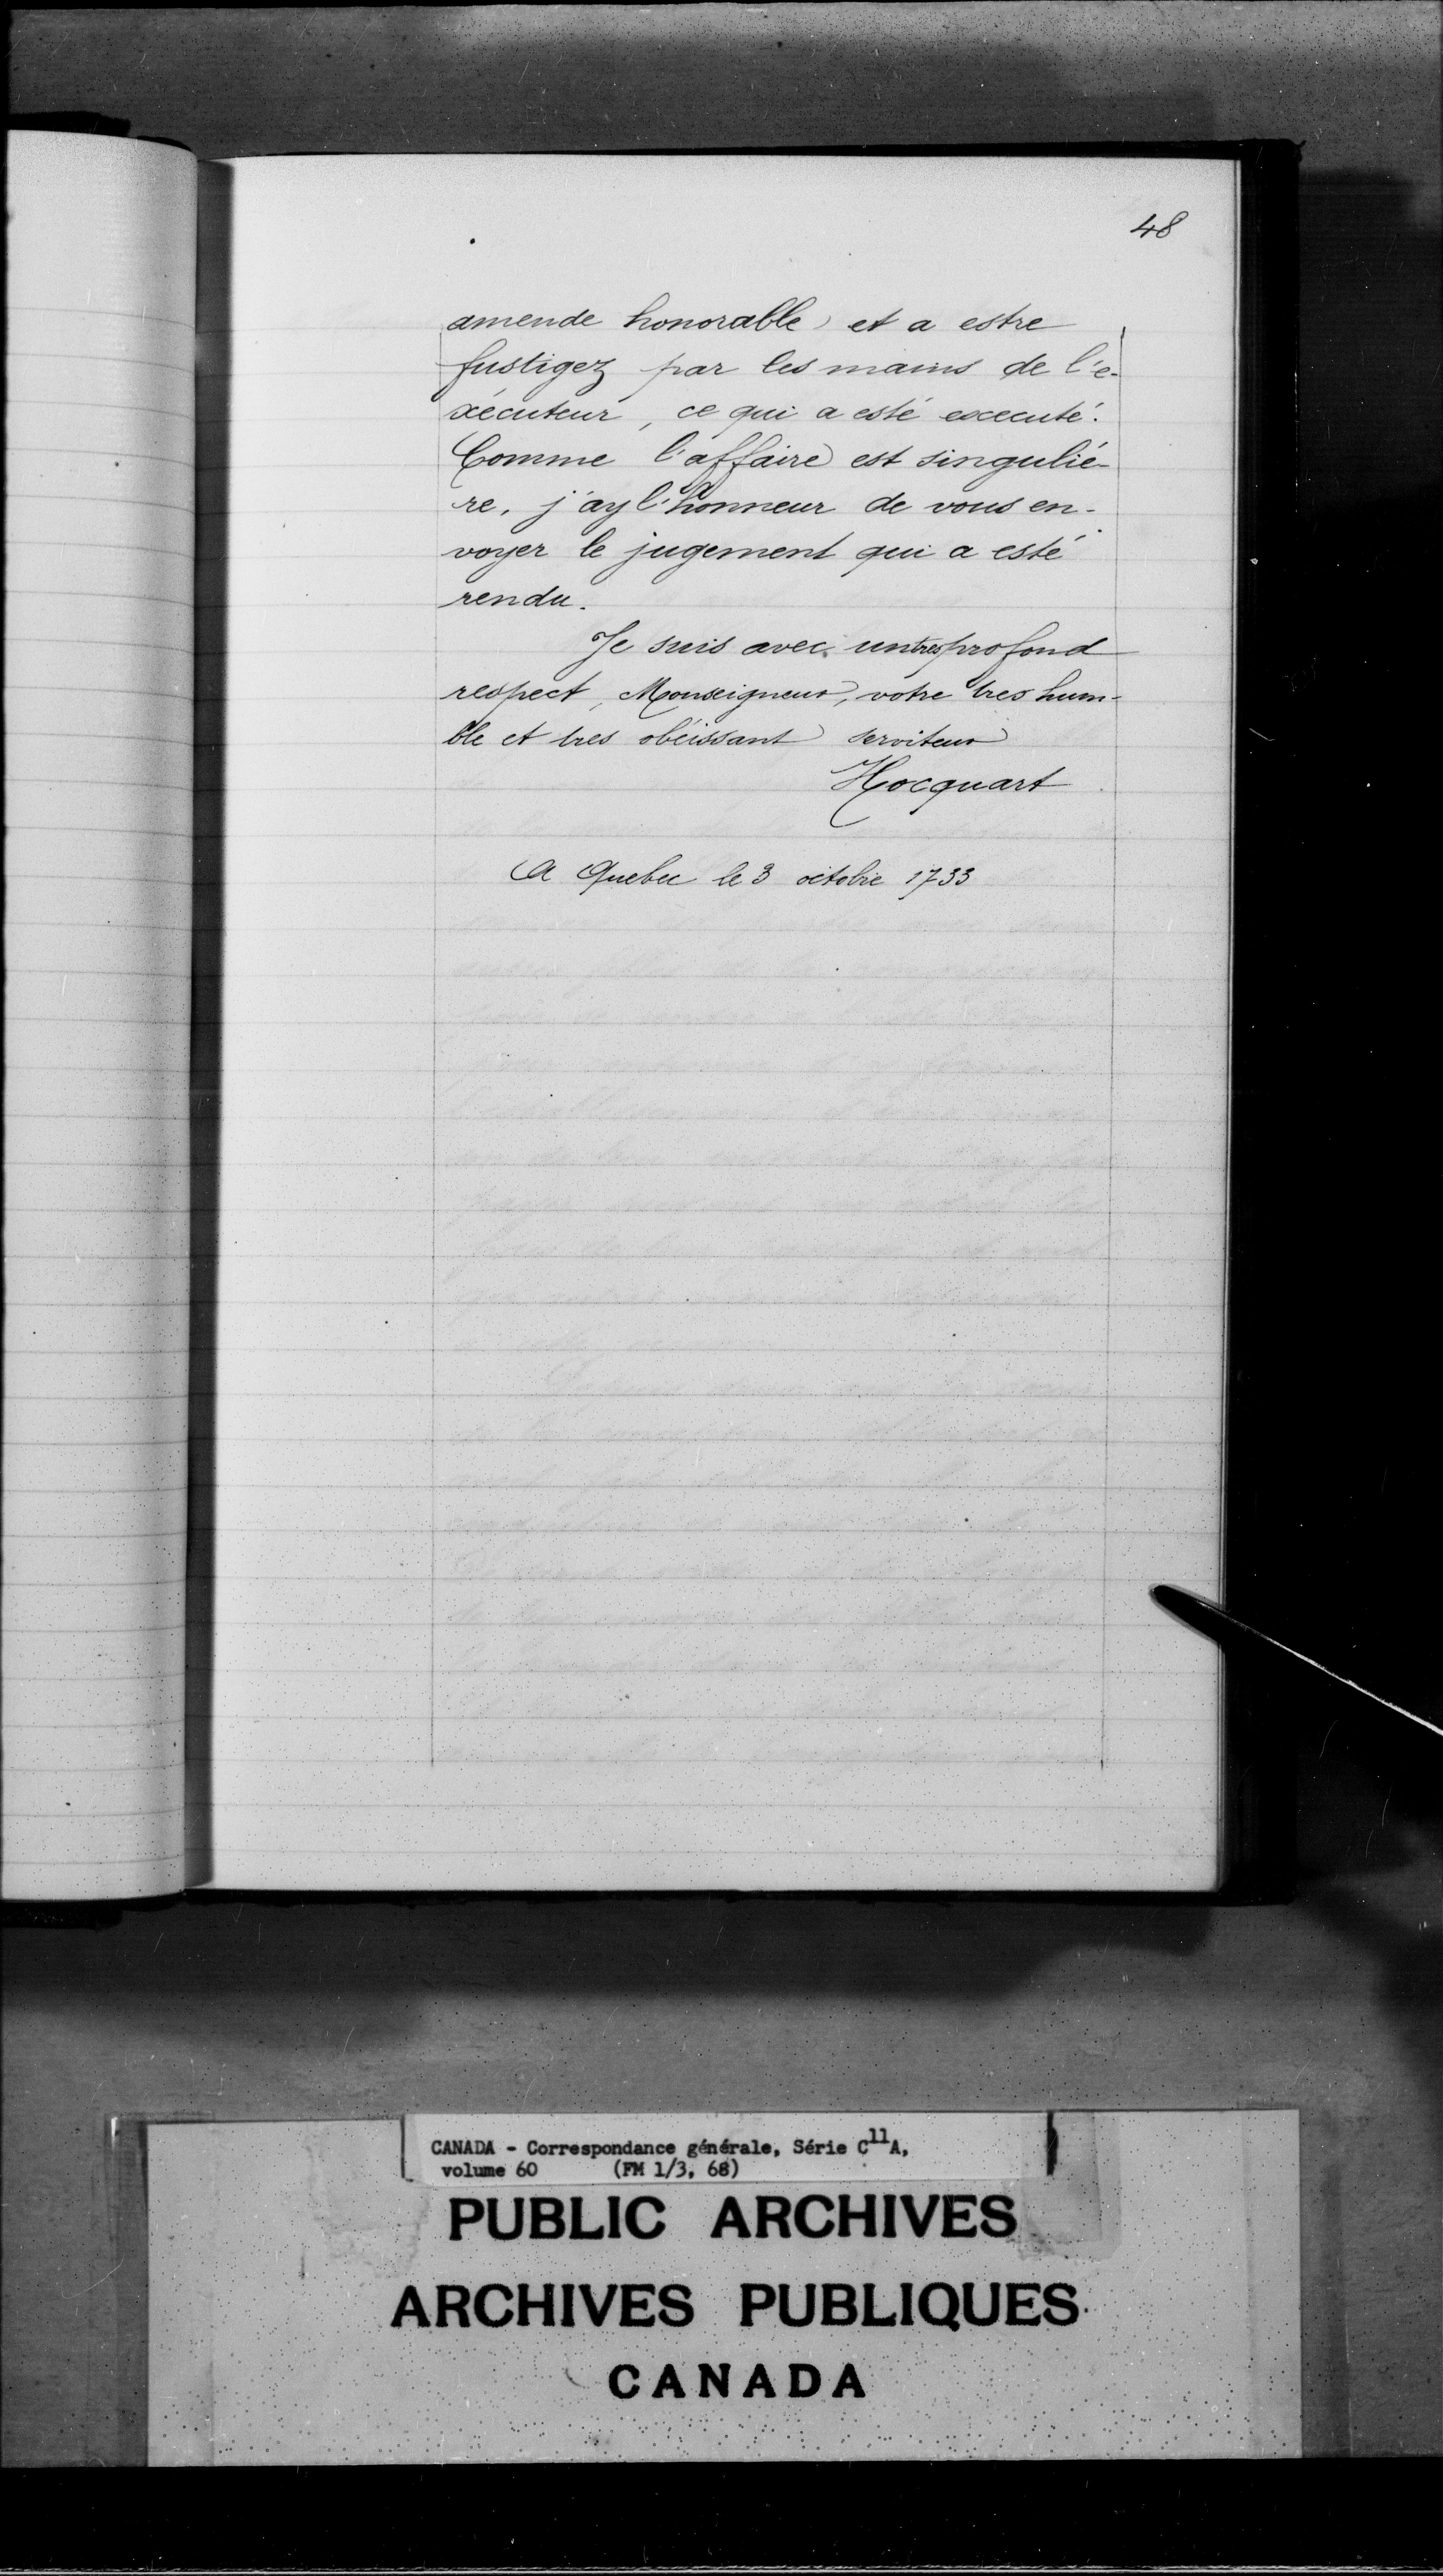 48
amende honorable et a estre
fustigez par les mains de l'e-
xécuteur, ce qui a esté executé.
Comme l'affaire est singulié-
re, j'ay l'honneur de vous en-
voyer le jugement qui a esté
rendu.
Je suis avec un tres profond
respect, Monseigneur, votre tres hum-
ble et tres obéissant serviteur
Hocquart
A Quebec le 3 octobre 1733
CANADA - Correspondance générale, Série C11A,
volume 60 (FM 1/3, 68)
PUBLIC ARCHIVES
ARCHIVES PUBLIQUES
CANADA